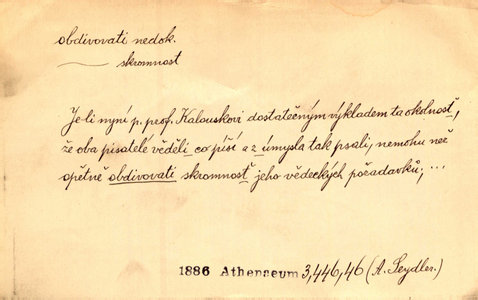 obdivovati nedok.
—— skromnost
Je-li nyní p. prof. Kalouskovi dostatečným výkladem ta okolnosť,
že oba pisatelé věděli co píší a z úmysla tak psali, nemohu než
opětně obdivovati skromnosť jeho vědeckých požadavků; ...
1886 Athenaeum 3,446,46 (A. Seydler.)